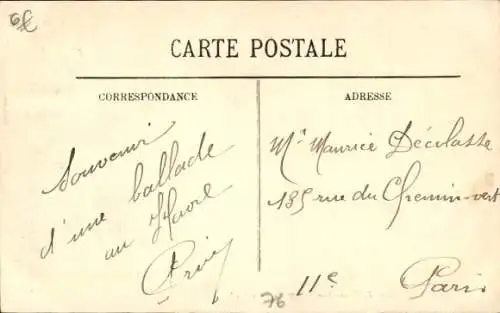 6€
CARTE POSTALE
CORRESPONDANCE
ADRESSE
Souvenir
d'une ballade
au Havre
Mr Maurice Décolasse
135 rue du Chemin-vert
11e
Paris
76